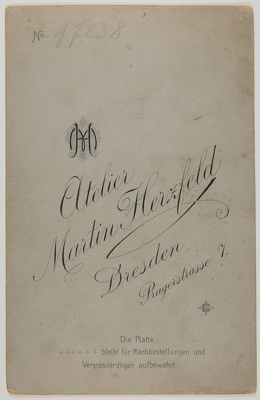 No. 97238
MH
Atelier
Martin Herzfeld
Dresden
Pragerstrasse 7.
Die Platte
bleibt für Nachbestellungen und
Vergrösserungen aufbewahrt.